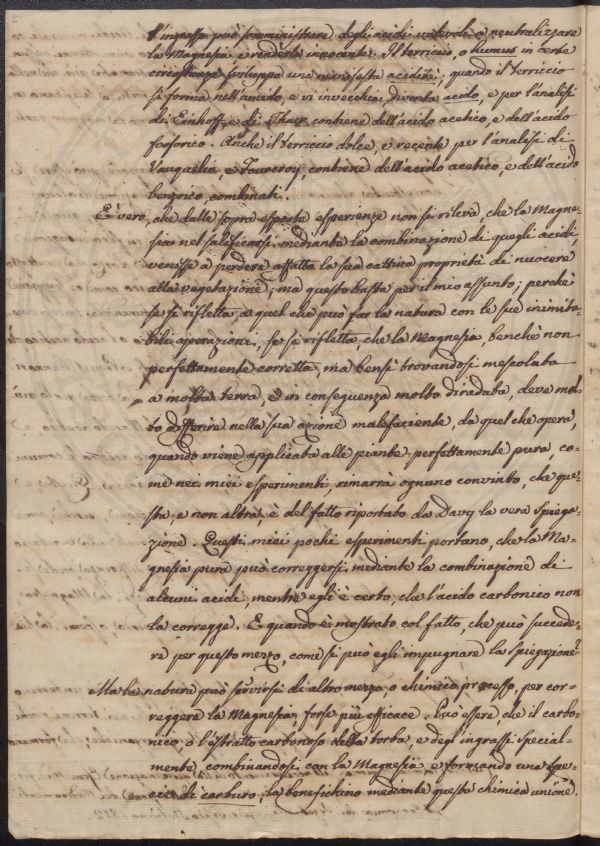 l'ingrasso può somministrare degli acidi valevoli a neutralizzare
la Magnesia e renderla innocente. Il terriccio, o humus in certe
circostanze sviluppa una manifesta acidità; quando il terriccio
si forma nell'umido, e vi invecchia, diventa acido, e per l'analisi
di Einhoff, e di Thaer contiene dell'acido acetico, e dell'acido
fosforico. Anche il terriccio dolce, e recente per l'analisi di
Vauquelin, e Fourcroy, contiene dell'acido acetico, e dell'acido
benzoico, combinati.
È vero, che dalle sopra esposte esperienze non si rileva, che la Magne-
sia nel salificarsi mediante la combinazione di quegli acidi,
venisse a perdere affatto la sua cattiva proprietà di nuocere
alla vegetazione; ma questo basta per il mio assunto; perchè
se si rifletta, a quel che può far la natura con le sue inimita-
bili operazioni, se si rifletta, che la Magnesia, benchè non
perfettamente corretta, ma bensì trovandosi mescolata
a molta terra, ed in conseguenza molto diradata, deve mol-
to differire nella sua azione maleficiente, da quel che opera,
quando viene applicata alle piante perfettamente pura, co-
me nei miei esperimenti, rimarrà ognuno convinto, che que-
sta, e non altra, è del fatto riportato da Davy la vera spiega-
zione. Questi miei pochi esperimenti portano, che la Ma-
gnesia pura può correggersi mediante la combinazione di
alcuni acidi, mentre egli è certo, che l'acido carbonico non
la corregge. E quando è mostrato col fatto, che può succede-
re per questo mezzo, come si può egli impugnare la spiegazione?
Ma la natura può servirsi di altro mezzo, o chimico processo, per cor-
reggere la Magnesia, forse più efficace. Può essere, che il carbo-
nico, o l'estratto carbonoso della torba, e degl'ingrassi special-
mente combinandosi con la Magnesia, e formando una spe-
cie di carburo, la benefichino mediante questa chimica unione.